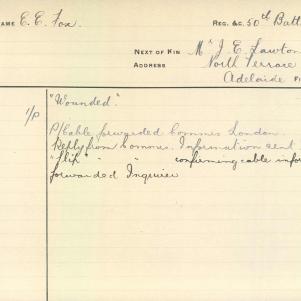 NAME E. E. Fox. REG. &C. 50th Batt
NEXT OF KIN Mr J. E. Lawton
ADDRESS North Terrace
Adelaide
1/P "Wounded".
P/Cable forwarded Commrs London.
Reply from Commrs. Information sent
"Slip" " " confirming cable infor
forwarded Inquirer